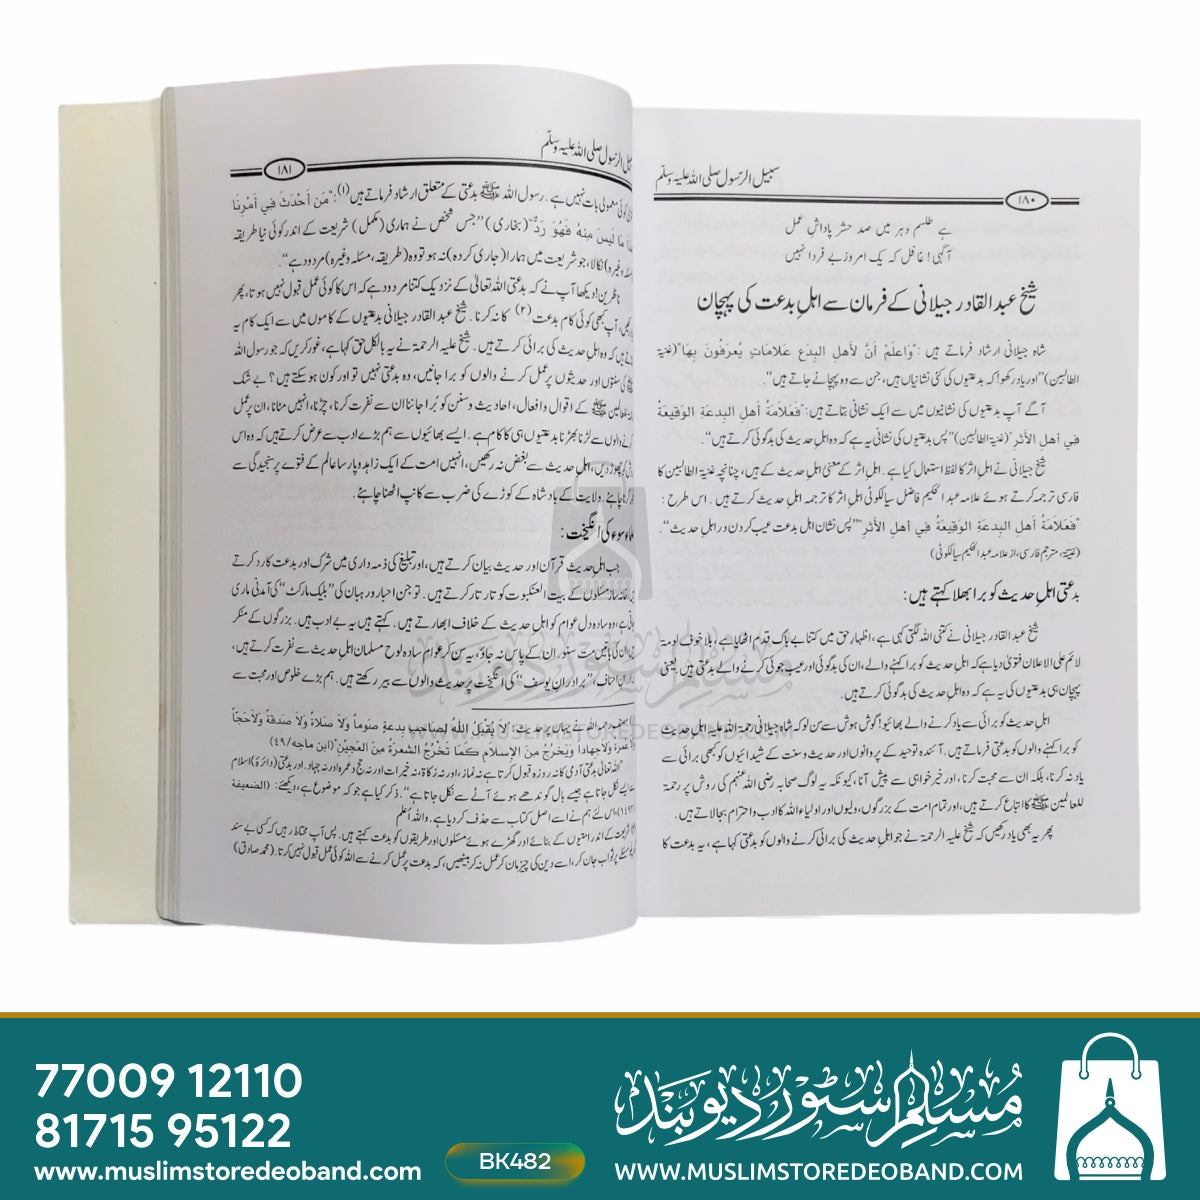 سبیل الرسول صلی اللہ علیہ وسلم
۱۸۰
ہے طلسم دہر میں صد حشر پاداشِ عمل
آگہی! غافل کہ یک امروز بے فردا نہیں
شیخ عبد القادر جیلانی کے فرمان سے اہلِ بدعت کی پہچان
شاہ جیلانی ارشاد فرماتے ہیں: "وَاعلَمْ أنَّ لأهلِ البِدَعِ عَلامَاتٍ يُعرَفُونَ بِهَا" (غنیۃ
الطالبین) "اور یاد رکھو! کہ بدعتیوں کی کئی نشانیاں ہیں، جن سے وہ پہچانے جاتے ہیں"۔
آگے آپ بدعتیوں کی نشانیوں میں سے ایک نشانی بتاتے ہیں: "فَعَلاَمَةُ أهلِ البِدعَةِ الوَقِيعَةُ
فِي أهلِ الأثَرِ" (غنیۃ الطالبین) "پس بدعتیوں کی نشانی یہ ہے کہ وہ اہل حدیث کی بدگوئی کرتے ہیں"۔
شیخ جیلانی نے اہل اثر کا لفظ استعمال کیا ہے۔ اہل اثر کے معنی اہل حدیث کے ہیں، چنانچہ غنیۃ الطالبین کا
فارسی ترجمہ کرتے ہوئے علامہ عبد الحکیم فاضل سیالکوٹی اہل اثر کا ترجمہ اہل حدیث کرتے ہیں۔ اس طرح:
"فَعَلاَمَةُ أهلِ البِدعَةِ الوَقِيعَةُ فِي أهلِ الأثَرِ" "پس نشان اہل بدعت عیب کردن در اہل حدیث"۔
(غنیۃ، مترجم فارسی، از علامہ عبد الحکیم سیالکوٹی)
بدعتی اہلِ حدیث کو برا بھلا کہتے ہیں:
شیخ عبد القادر جیلانی نے کتنی اللہ لگتی کہی ہے، اظہارِ حق میں کتنا بے باک قدم اٹھایا ہے، بلا خوف لومۃ
لائم علی الاعلان فتویٰ دیا ہے کہ اہل حدیث کو برا کہنے والے، ان کی بدگوئی اور عیب جوئی کرنے والے بدعتی ہیں یعنی
پہچان ہی بدعتیوں کی یہ ہے کہ وہ اہل حدیث کی بدگوئی کرتے ہیں۔
اہل حدیث کو برائی سے یاد کرنے والے بھائیو! گوش ہوش سے سن لو کہ شاہ جیلانی رحمۃ اللہ علیہ اہل حدیث
کو برا کہنے والوں کو بدعتی فرماتے ہیں۔ آئندہ توحید کے پروانوں اور حدیث وسنت کے شیدائیوں کو کبھی برائی سے
یاد نہ کرنا، بلکہ ان سے محبت کرنا، اور خیر خواہی سے پیش آنا، کیونکہ یہ لوگ صحابہ رضی اللہ عنہم کی روش پر رحمۃ
للعالمین ﷺ کا اتباع کرتے ہیں، اور تمام امت کے بزرگوں، ولیوں اور اولیاء اللہ کا ادب واحترام بجالاتے ہیں۔
پھر یہ بھی یاد رکھیں کہ شیخ علیہ الرحمۃ نے جو اہل حدیث کی برائی کرنے والوں کو بدعتی کہا ہے، یہ بدعت کا
الرسول صلی اللہ علیہ وسلم
۱۸۱
کوئی معمولی بات نہیں ہے۔ رسول اللہ ﷺ بدعتی کے متعلق ارشاد فرماتے ہیں (۱): "مَن أحْدَثَ فِي أمْرِنَا
مَا لَيسَ مِنهُ فَهُوَ رَدٌّ" (بخاری) "جس شخص نے ہماری (مکمل) شریعت کے اندر کوئی نیا طریقہ
وغیرہ) نکالا، جو شریعت میں ہمارا (جاری کردہ) نہ ہو تو وہ (طریقہ، مسئلہ وغیرہ) مردود ہے"۔
ناظرین! دیکھا آپ نے کہ بدعتی اللہ تعالیٰ کے نزدیک کتنا مردود ہے کہ اس کا کوئی عمل قبول نہیں ہوتا، پھر
آپ کبھی کوئی کام بدعت (۲) کا نہ کرنا۔ شیخ عبد القادر جیلانی بدعتیوں کے کاموں میں سے ایک کام یہ
ہیں کہ وہ اہل حدیث کی برائی کرتے ہیں۔ شیخ علیہ الرحمۃ نے یہ بالکل حق کہا ہے، غور کریں کہ جو رسول اللہ
کی سنتوں اور حدیثوں پر عمل کرنے والوں کو برا جانیں، وہ بدعتی نہیں تو اور کون ہو سکتے ہیں؟ بے شک
ﷺ کے اقوال وافعال، احادیث وسنن کو برا جاننا ان سے نفرت کرنا، چڑنا، انہیں مٹانا، ان پر عمل
والوں سے لڑنا بھڑنا بدعتیوں ہی کا کام ہے۔ ایسے بھائیوں سے ہم بڑے ادب سے عرض کرتے ہیں کہ وہ اس
چھوڑ دیں، اہل حدیث سے بغض نہ رکھیں، انہیں امت کے ایک زاہد وپارسا عالم کے فتوے پر سنجیدگی سے
چاہئے۔ ولایت کے بادشاہ کے کوڑے کی ضرب سے کانپ اٹھنا چاہئے۔
سوء کی انگیخت:
جب اہل حدیث قرآن اور حدیث بیان کرتے ہیں، اور تبلیغ کی ذمہ داری میں شرک اور بدعت کا رد کرتے
مسئلوں کے بیت العنکبوت کو تار تار کرتے ہیں۔ تو جن احبار ورہبان کی "بلیک مارکٹ" کی آمدنی ماری
ہے، وہ سادہ دل عوام کو اہل حدیث کے خلاف ابھارتے ہیں۔ کہتے ہیں یہ بے ادب ہیں۔ بزرگوں کے منکر
کی باتیں مت سنو، ان کے پاس نہ جاؤ، یہ سن کر عوام سادہ لوح مسلمان اہل حدیث سے نفرت کرتے ہیں،
احناف "برادرانِ یوسف" کی انگیخت پر حدیث والوں سے بیر رکھتے ہیں۔ ہم بڑے خلوص اور محبت سے
مصنف رحمہ اللہ نے یہاں پر حدیث "لاَ يُقبَلُ اللهُ لِصَاحِبِ بِدعةٍ صَوماً وَلاَ صَلاَةً وَلاَ صَدقةً وَلاَحَجًّا
وَلاَ عُمرَةً وَلاَجِهاداً وَيَخرُجُ مِنَ الإسلامِ كَمَا تَخْرُجُ الشعرَةُ مِنَ العَجِيْنِ" (ابن ماجه/٤٩)
"اللہ تعالیٰ بدعتی آدمی کا نہ روزہ قبول کرتا ہے نہ نماز، اور نہ زکاۃ، نہ خیرات اور نہ حج وعمرہ اور نہ جہاد، اور بدعتی (دائرہ) اسلام
سے ایسے نکل جاتا ہے جیسے بال گوندھے ہوئے آٹے سے نکل جاتا ہے"۔ ذکر کیا ہے جو کہ موضوع ہے، دیکھئے: (الضعیفۃ
۱۴۹۳)، اس لئے ہم نے اسے اصل کتاب سے حذف کردیا ہے۔ واللہ أعلم
شریعت کے اندر امتیوں کے بنائے اور گھڑے ہوئے مسئلوں اور طریقوں کو بدعت کہتے ہیں۔ پس آپ محتاط رہیں کہ کسی بے سند
مسئلے پر ثواب جان کر، اسے دین کی چیز مان کر عمل نہ کر بیٹھیں، کہ بدعت پر عمل کرنے سے اللہ کوئی عمل قبول نہیں کرتا۔ (محمد صادق)
مسلم سٹور دیوبند
WWW.MUSLIMSTOREDEOBAND.COM
77009 12110
81715 95122
www.muslimstoredeoband.com
BK482
مسلم سٹور دیوبند
WWW.MUSLIMSTOREDEOBAND.COM